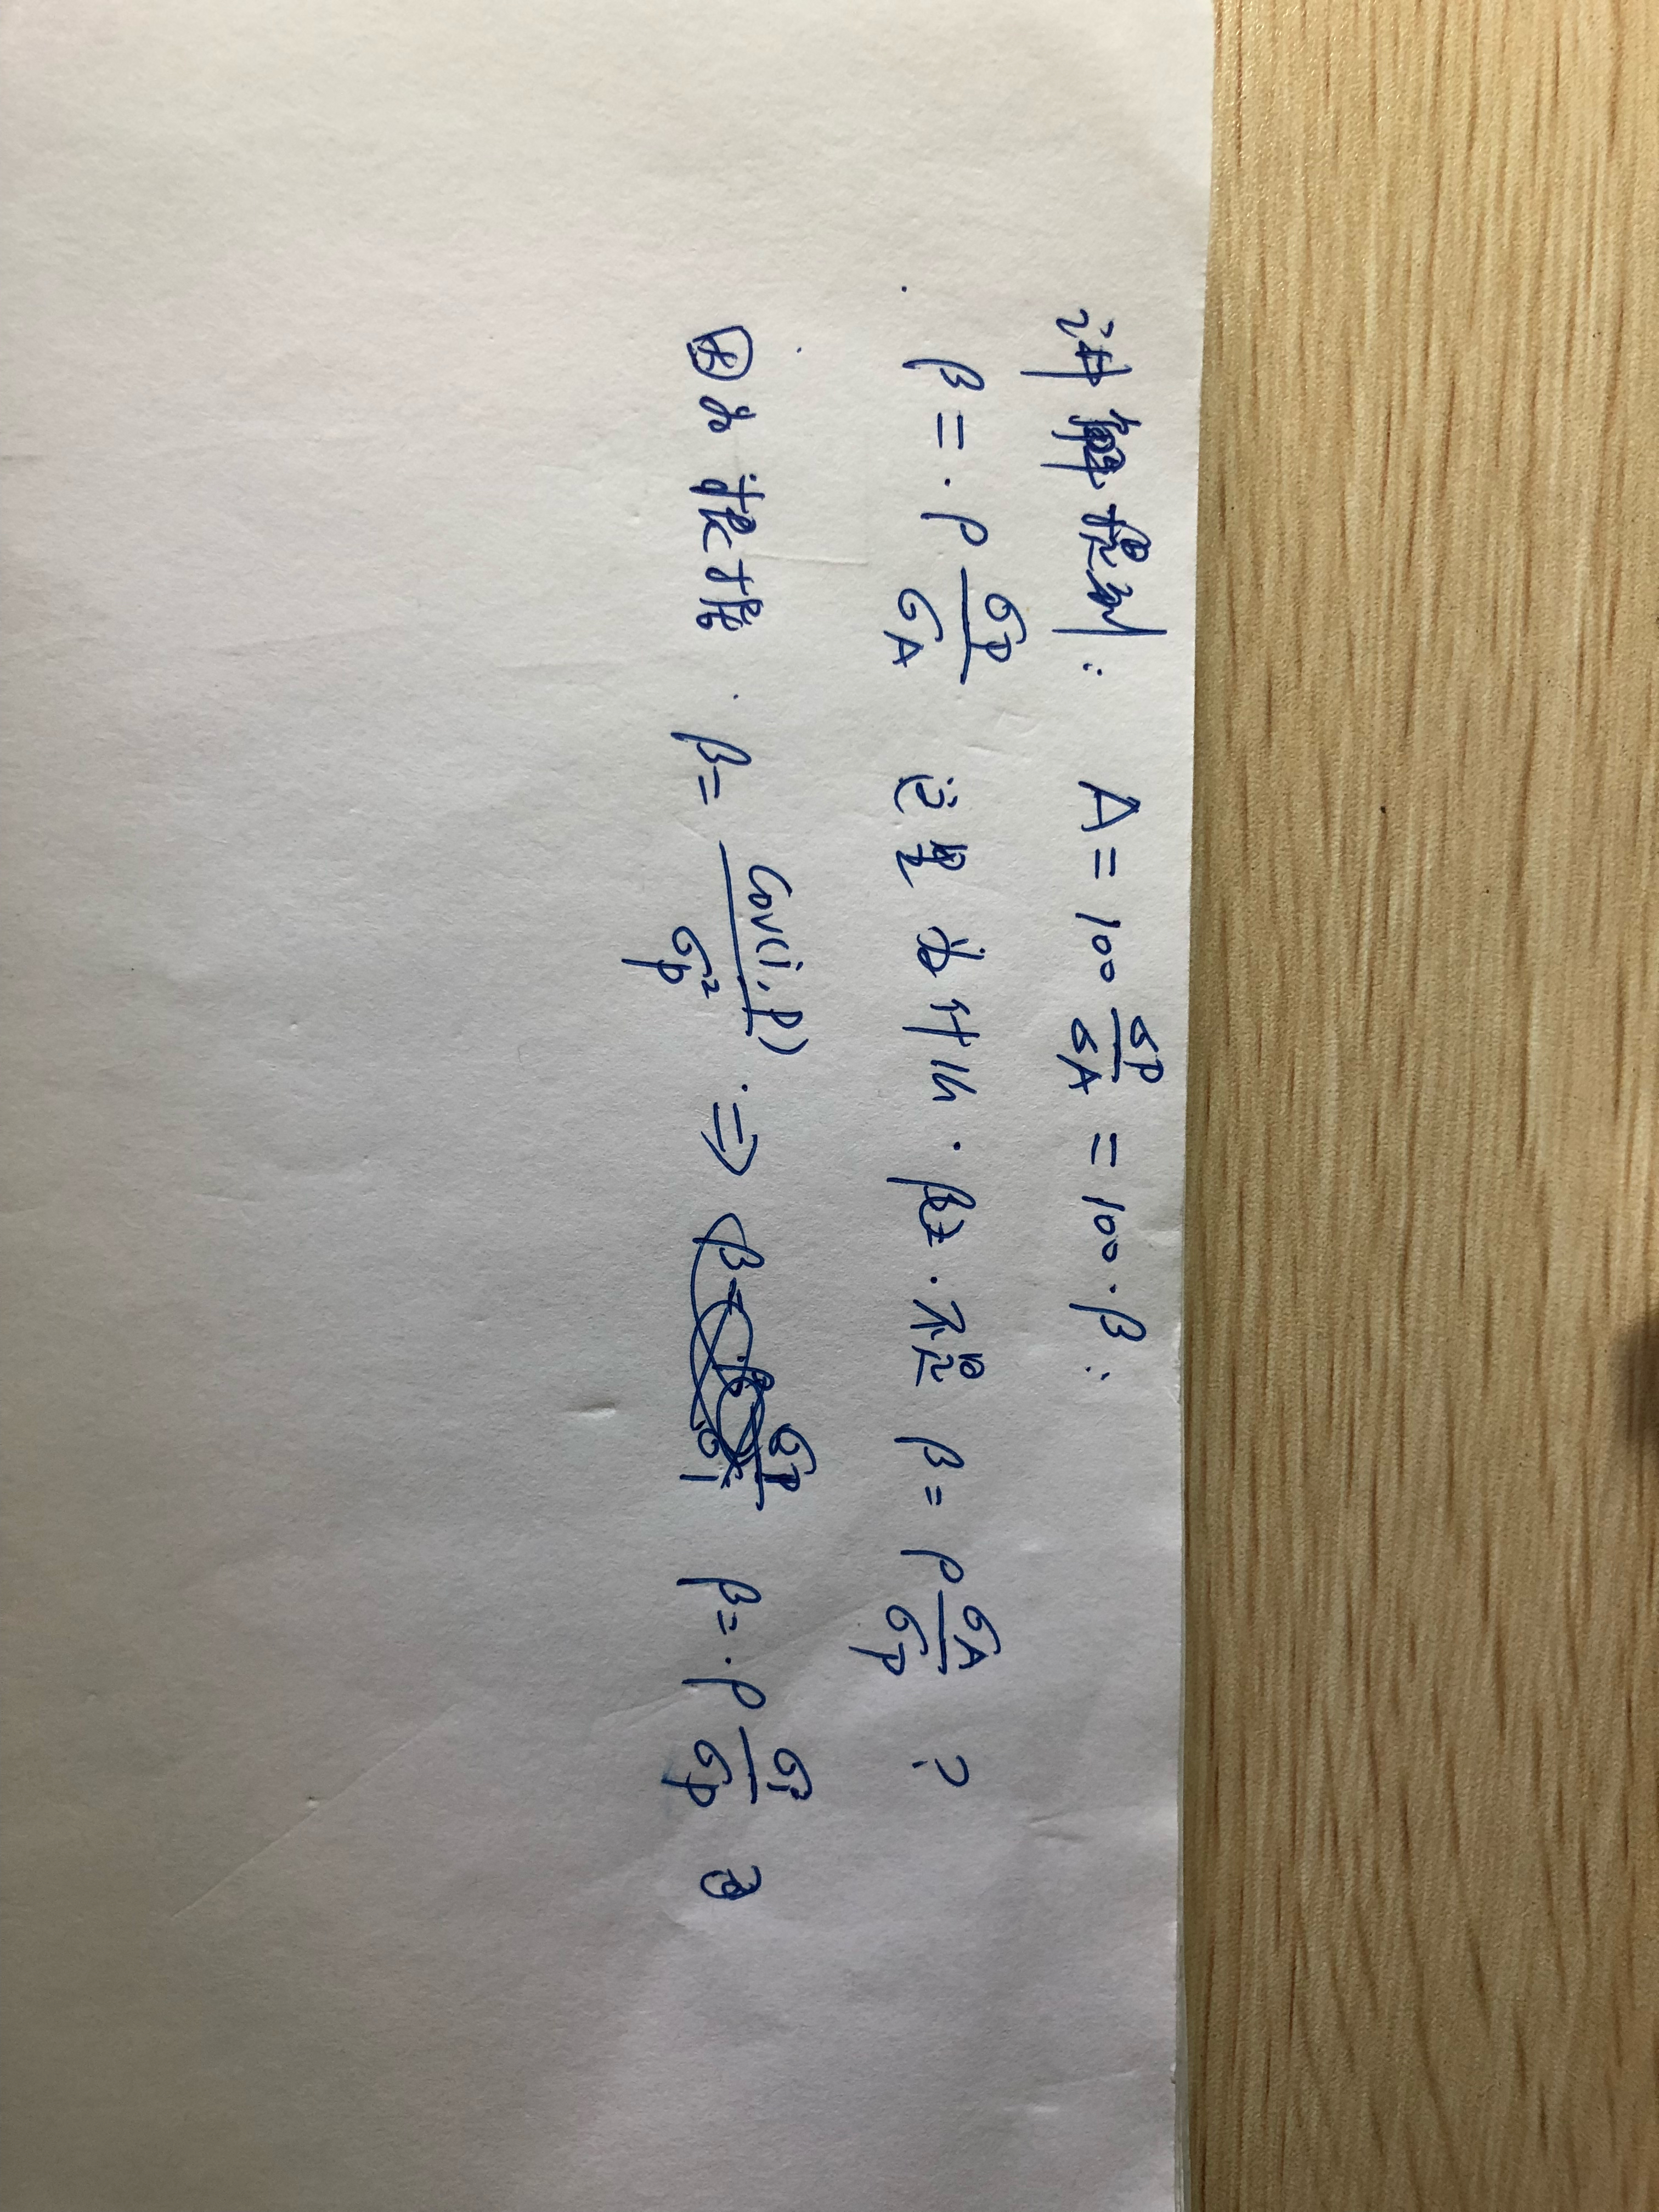 讲解提到: A = 100 σP/σA = 100·β:
β = ρ σP/σA 这里为什么 β 不是 β = ρ σA/σP ?
因为根据 β = Cov(i,P)/σp² ⇒ β = ρ σi/σp